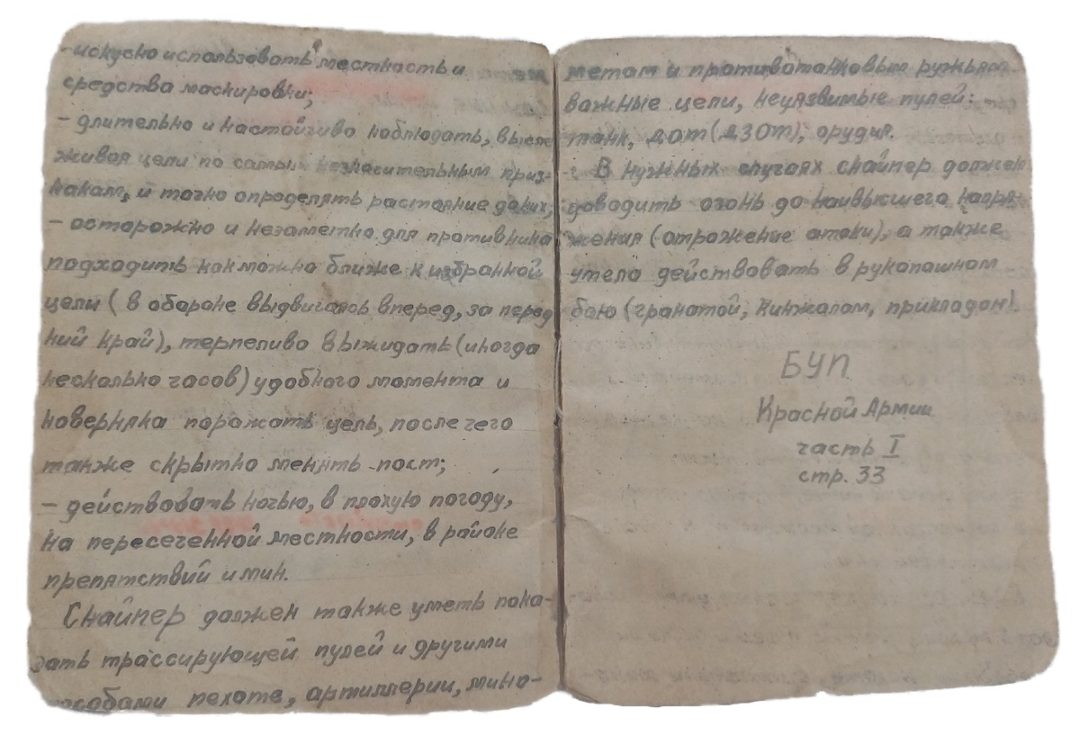 - искусно использовать местность и
средства маскировки;
- длительно и настойчиво наблюдать, высле-
живая цели по самым незначительным приз-
накам, и точно определять растояние до них;
- осторожно и незаметно для противника
подходить как можно ближе к избранной
цели (в обороне выдвигаясь вперед, за перед
ний край), терпеливо выжидать (иногда
несколько часов) удобного момента и
наверняка поражать цель, после чего
также скрытно менять пост;
- действовать ночью, в плохую погоду,
на пересеченной местности, в районе
препятствий и мин.
Снайпер должен также уметь пока-
зать трассирующей пулей и другими
способами пехоте, артиллерии, мино-
метам и противотанковым ружьям
важные цели, неуязвимые пулей:
танк, дот (дзот), орудия.
В нужных случаях снайпер должен
доводить огонь до наивысшего напря-
жения (отражение атаки), а также
умело действовать в рукопашном
бою (гранатой, кинжалом, прикладом).
БУП
Красной Армии
часть I
стр. 33